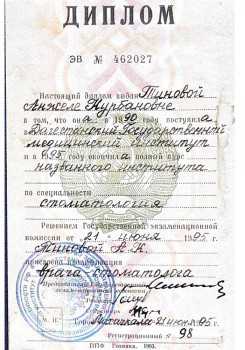 ДИПЛОМ
ЭВ № 462027
Настоящий диплом выдан Тиновой
Анжеле Курбановне
в том, что она в 1990 году поступила
в Дагестанский Государственный
медицинский институт
и в 1995 году окончила полный курс
названного института
по специальности
стоматология
Решением Государственной экзаменационной
комиссии от 21 июня 1995 г.
Тиновой А.К.
присвоена квалификация
врача-стоматолога
Председатель Государственной
экзаменационной комиссии
Ректор
Секретарь
М. П.
Город Махачкала 21 июня 1995 г.
Регистрационный № 98